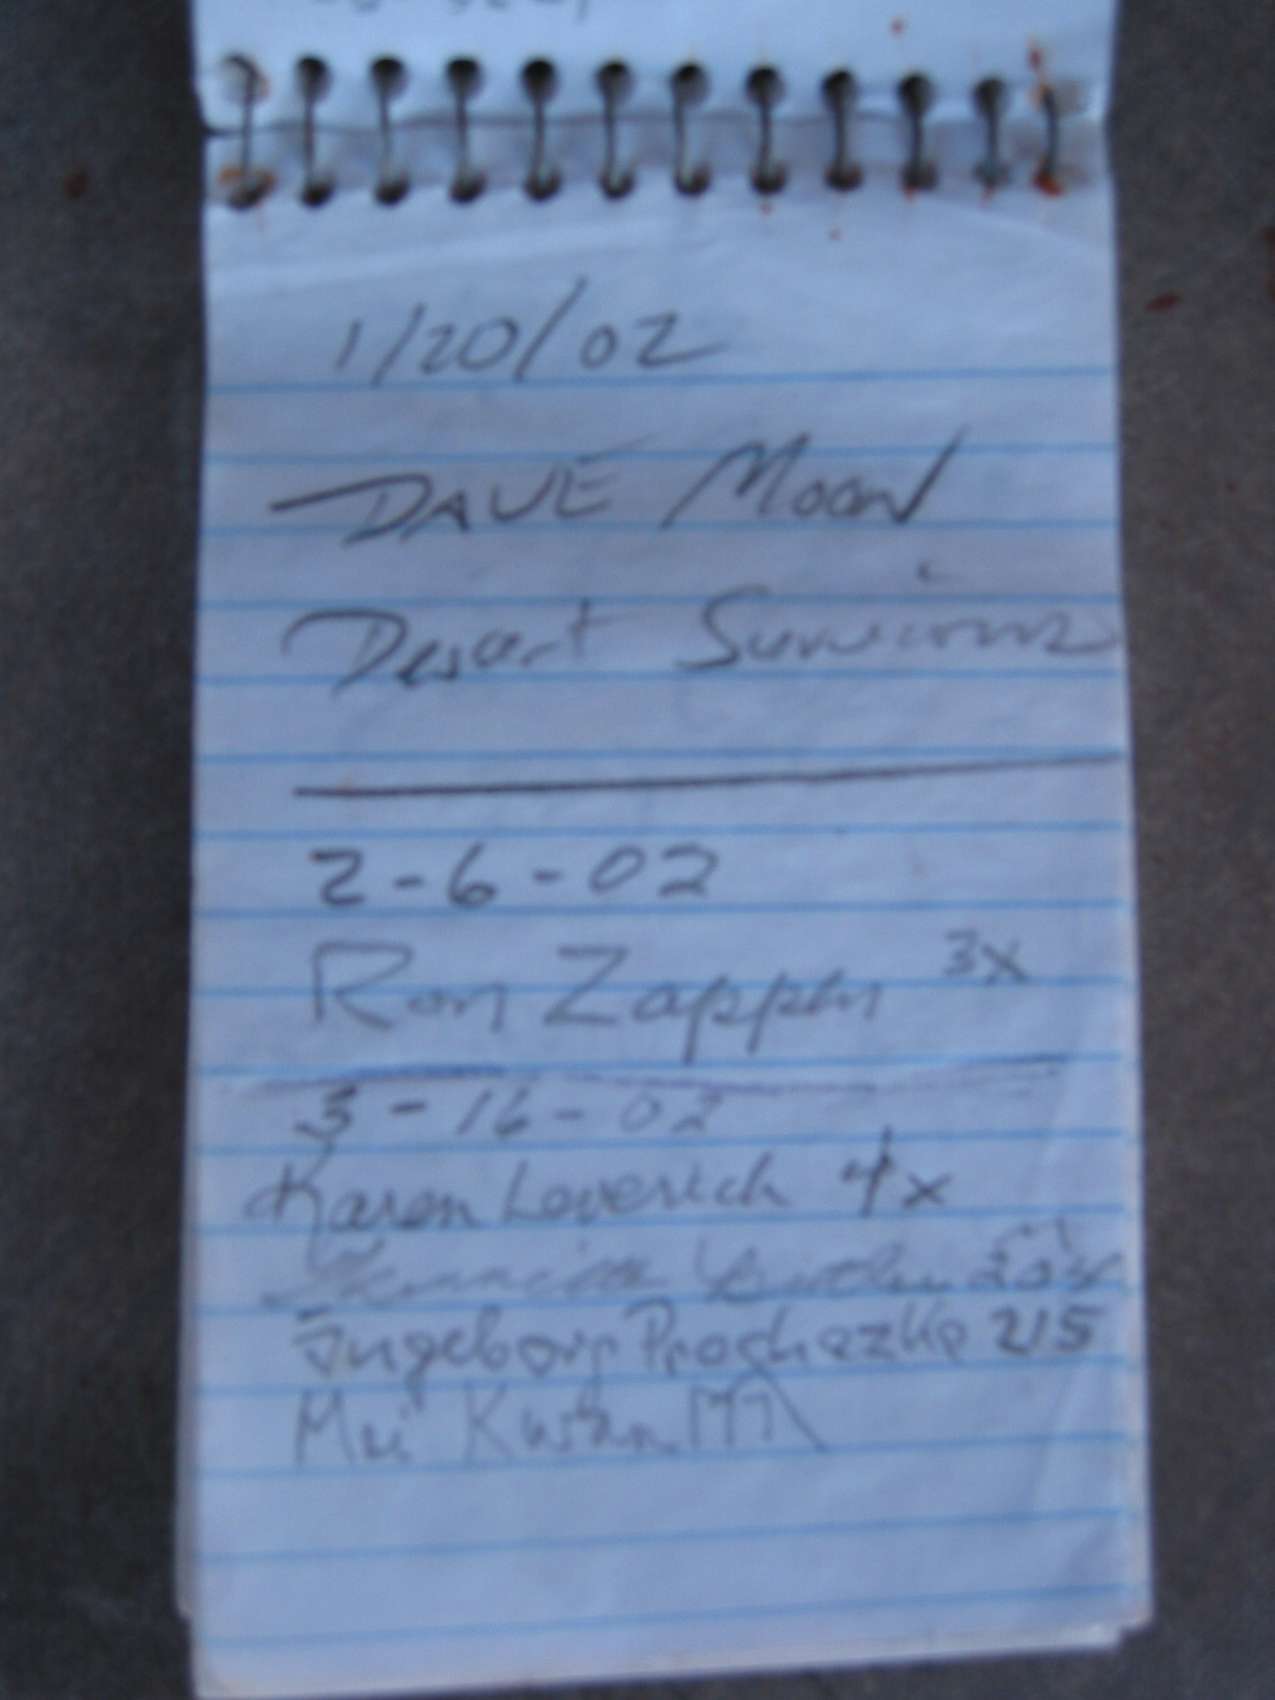 1/20/02
DAVE Moon
Desert Survivors
2-6-02
Ron Zappen 3x
3-16-02
Karen Leverich 4x
Ingeborg Prochazka 215
Mui Kwan